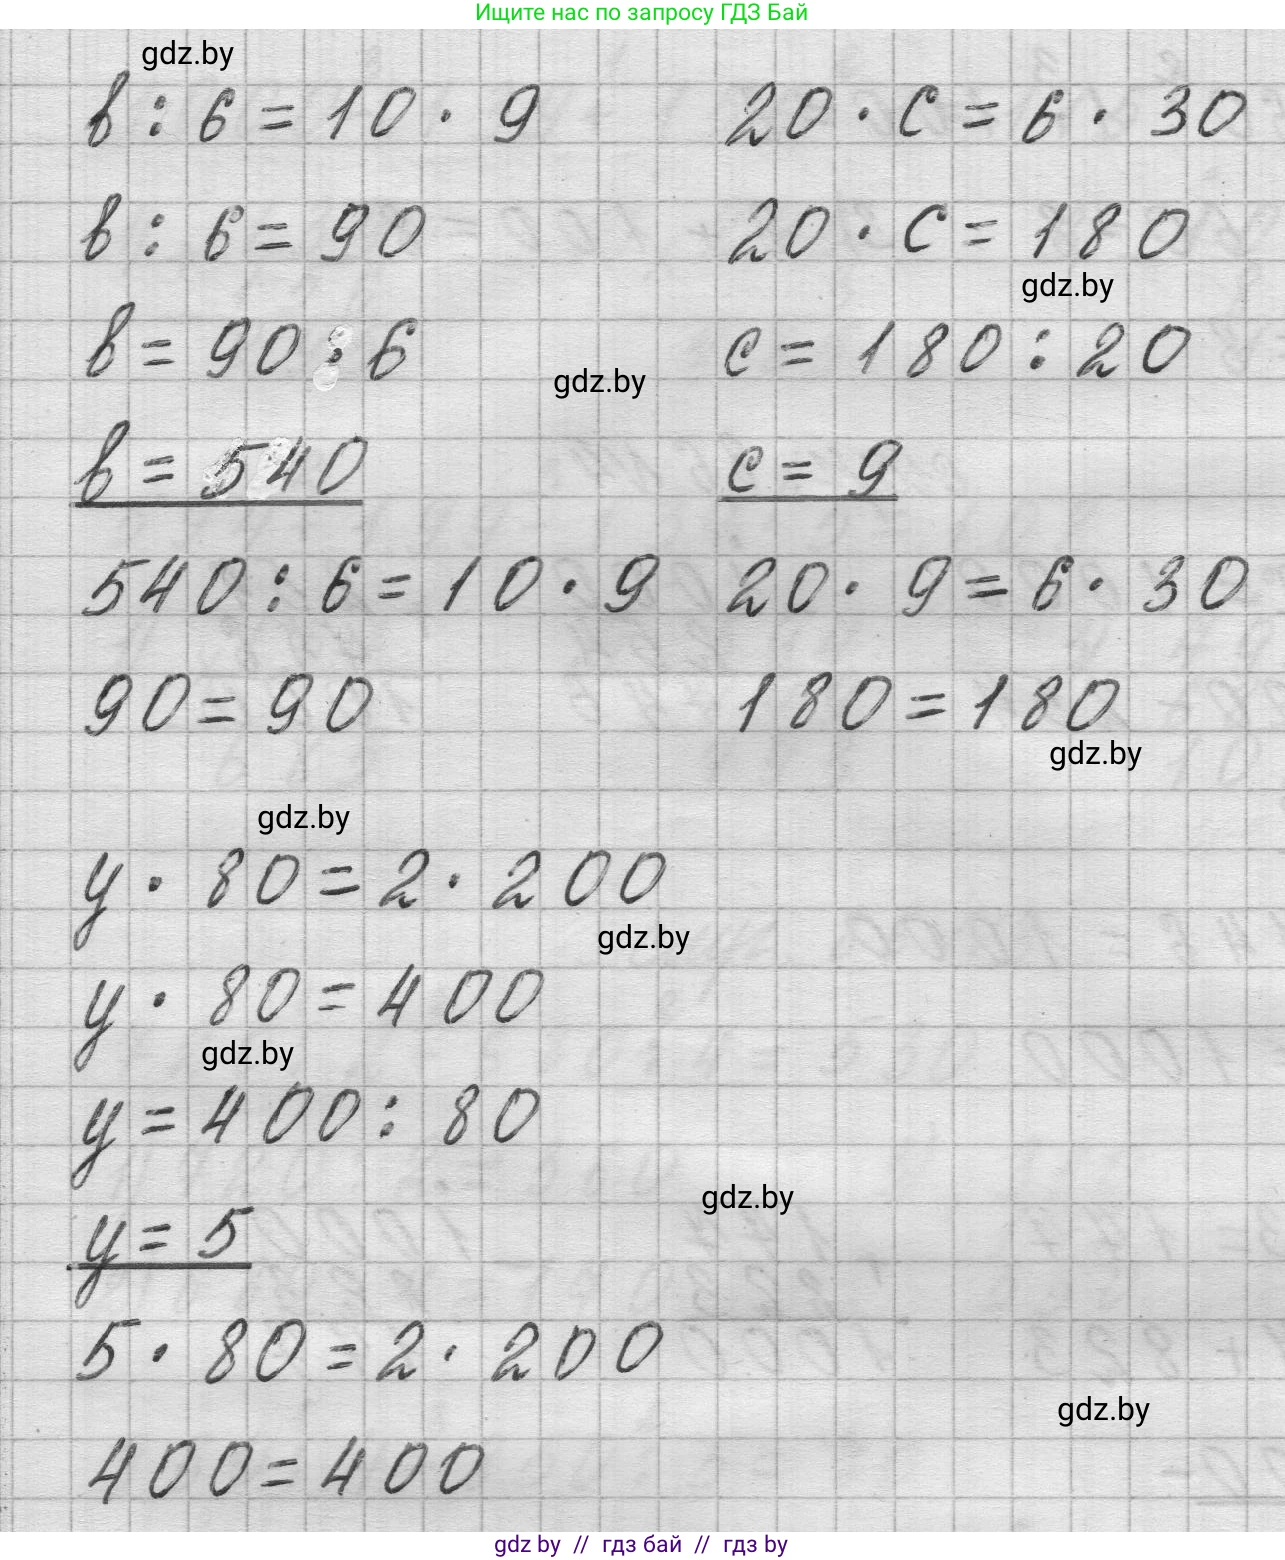 Ищите нас по запросу ГДЗ Бай
gdz.by
в : 6 = 10 · 9
в : 6 = 90
в = 90 · 6
gdz.by
в = 540
540 : 6 = 10 · 9
90 = 90
20 · с = 6 · 30
20 · с = 180
gdz.by
с = 180 : 20
с = 9
20 · 9 = 6 · 30
180 = 180
gdz.by
gdz.by
у · 80 = 2 · 200
gdz.by
у · 80 = 400
gdz.by
у = 400 : 80
gdz.by
у = 5
5 · 80 = 2 · 200
gdz.by
400 = 400
gdz by // гдз бай // гдз by